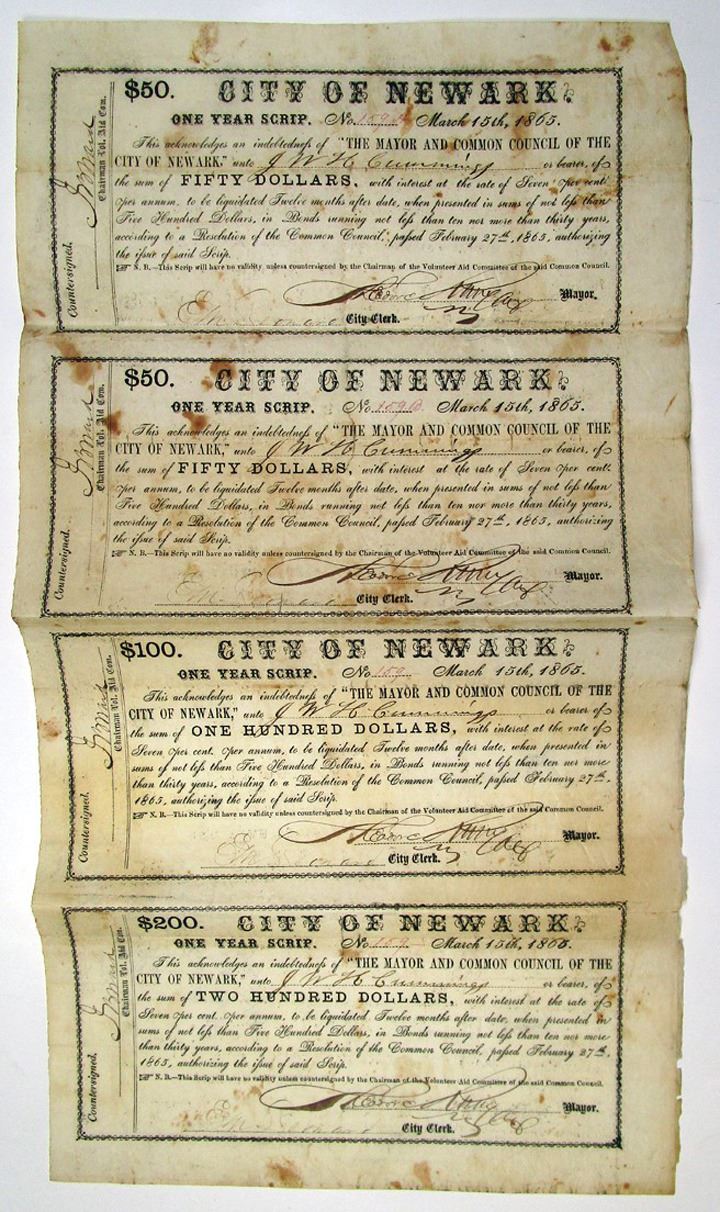 $50. CITY OF NEWARK.
ONE YEAR SCRIP. No. 159 A March 15th, 1865.
This acknowledges an indebtedness of "THE MAYOR AND COMMON COUNCIL OF THE
CITY OF NEWARK," unto J W H Cummings or bearer, of
the sum of FIFTY DOLLARS, with interest at the rate of Seven per cent.
per annum, to be liquidated Twelve months after date, when presented in sums of not less than
Five Hundred Dollars, in Bonds running not less than ten nor more than thirty years,
according to a Resolution of the Common Council, passed February 27th, 1865, authorizing
the issue of said Scrip.
☞ N. B.—This Scrip will have no validity unless countersigned by the Chairman of the Volunteer Aid Committee of the said Common Council.
Mayor.
City Clerk.
Countersigned.
Chairman Vol. Aid Com.
$50. CITY OF NEWARK.
ONE YEAR SCRIP. No. 159 B March 15th, 1865.
This acknowledges an indebtedness of "THE MAYOR AND COMMON COUNCIL OF THE
CITY OF NEWARK," unto J W H Cummings or bearer, of
the sum of FIFTY DOLLARS, with interest at the rate of Seven per cent.
per annum, to be liquidated Twelve months after date, when presented in sums of not less than
Five Hundred Dollars, in Bonds running not less than ten nor more than thirty years,
according to a Resolution of the Common Council, passed February 27th, 1865, authorizing
the issue of said Scrip.
☞ N. B.—This Scrip will have no validity unless countersigned by the Chairman of the Volunteer Aid Committee of the said Common Council.
Mayor.
City Clerk.
Countersigned.
Chairman Vol. Aid Com.
$100. CITY OF NEWARK.
ONE YEAR SCRIP. No. 159 March 15th, 1865.
This acknowledges an indebtedness of "THE MAYOR AND COMMON COUNCIL OF THE
CITY OF NEWARK," unto J W H Cummings or bearer of
the sum of ONE HUNDRED DOLLARS, with interest at the rate of
Seven per cent. per annum, to be liquidated Twelve months after date, when presented in
sums of not less than Five Hundred Dollars, in Bonds running not less than ten nor more
than thirty years, according to a Resolution of the Common Council, passed February 27th,
1865, authorizing the issue of said Scrip.
☞ N. B.—This Scrip will have no validity unless countersigned by the Chairman of the Volunteer Aid Committee of the said Common Council.
Mayor.
City Clerk.
Countersigned.
Chairman Vol. Aid Com.
$200. CITY OF NEWARK.
ONE YEAR SCRIP. No. 159 March 15th, 1865.
This acknowledges an indebtedness of "THE MAYOR AND COMMON COUNCIL OF THE
CITY OF NEWARK," unto J W H Cummings or bearer, of
the sum of TWO HUNDRED DOLLARS, with interest at the rate of
Seven per cent. per annum, to be liquidated Twelve months after date, when presented in
sums of not less than Five Hundred Dollars, in Bonds running not less than ten nor more
than thirty years, according to a Resolution of the Common Council, passed February 27th,
1865, authorizing the issue of said Scrip.
☞ N. B.—This Scrip will have no validity unless countersigned by the Chairman of the Volunteer Aid Committee of the said Common Council.
Mayor.
City Clerk.
Countersigned.
Chairman Vol. Aid Com.